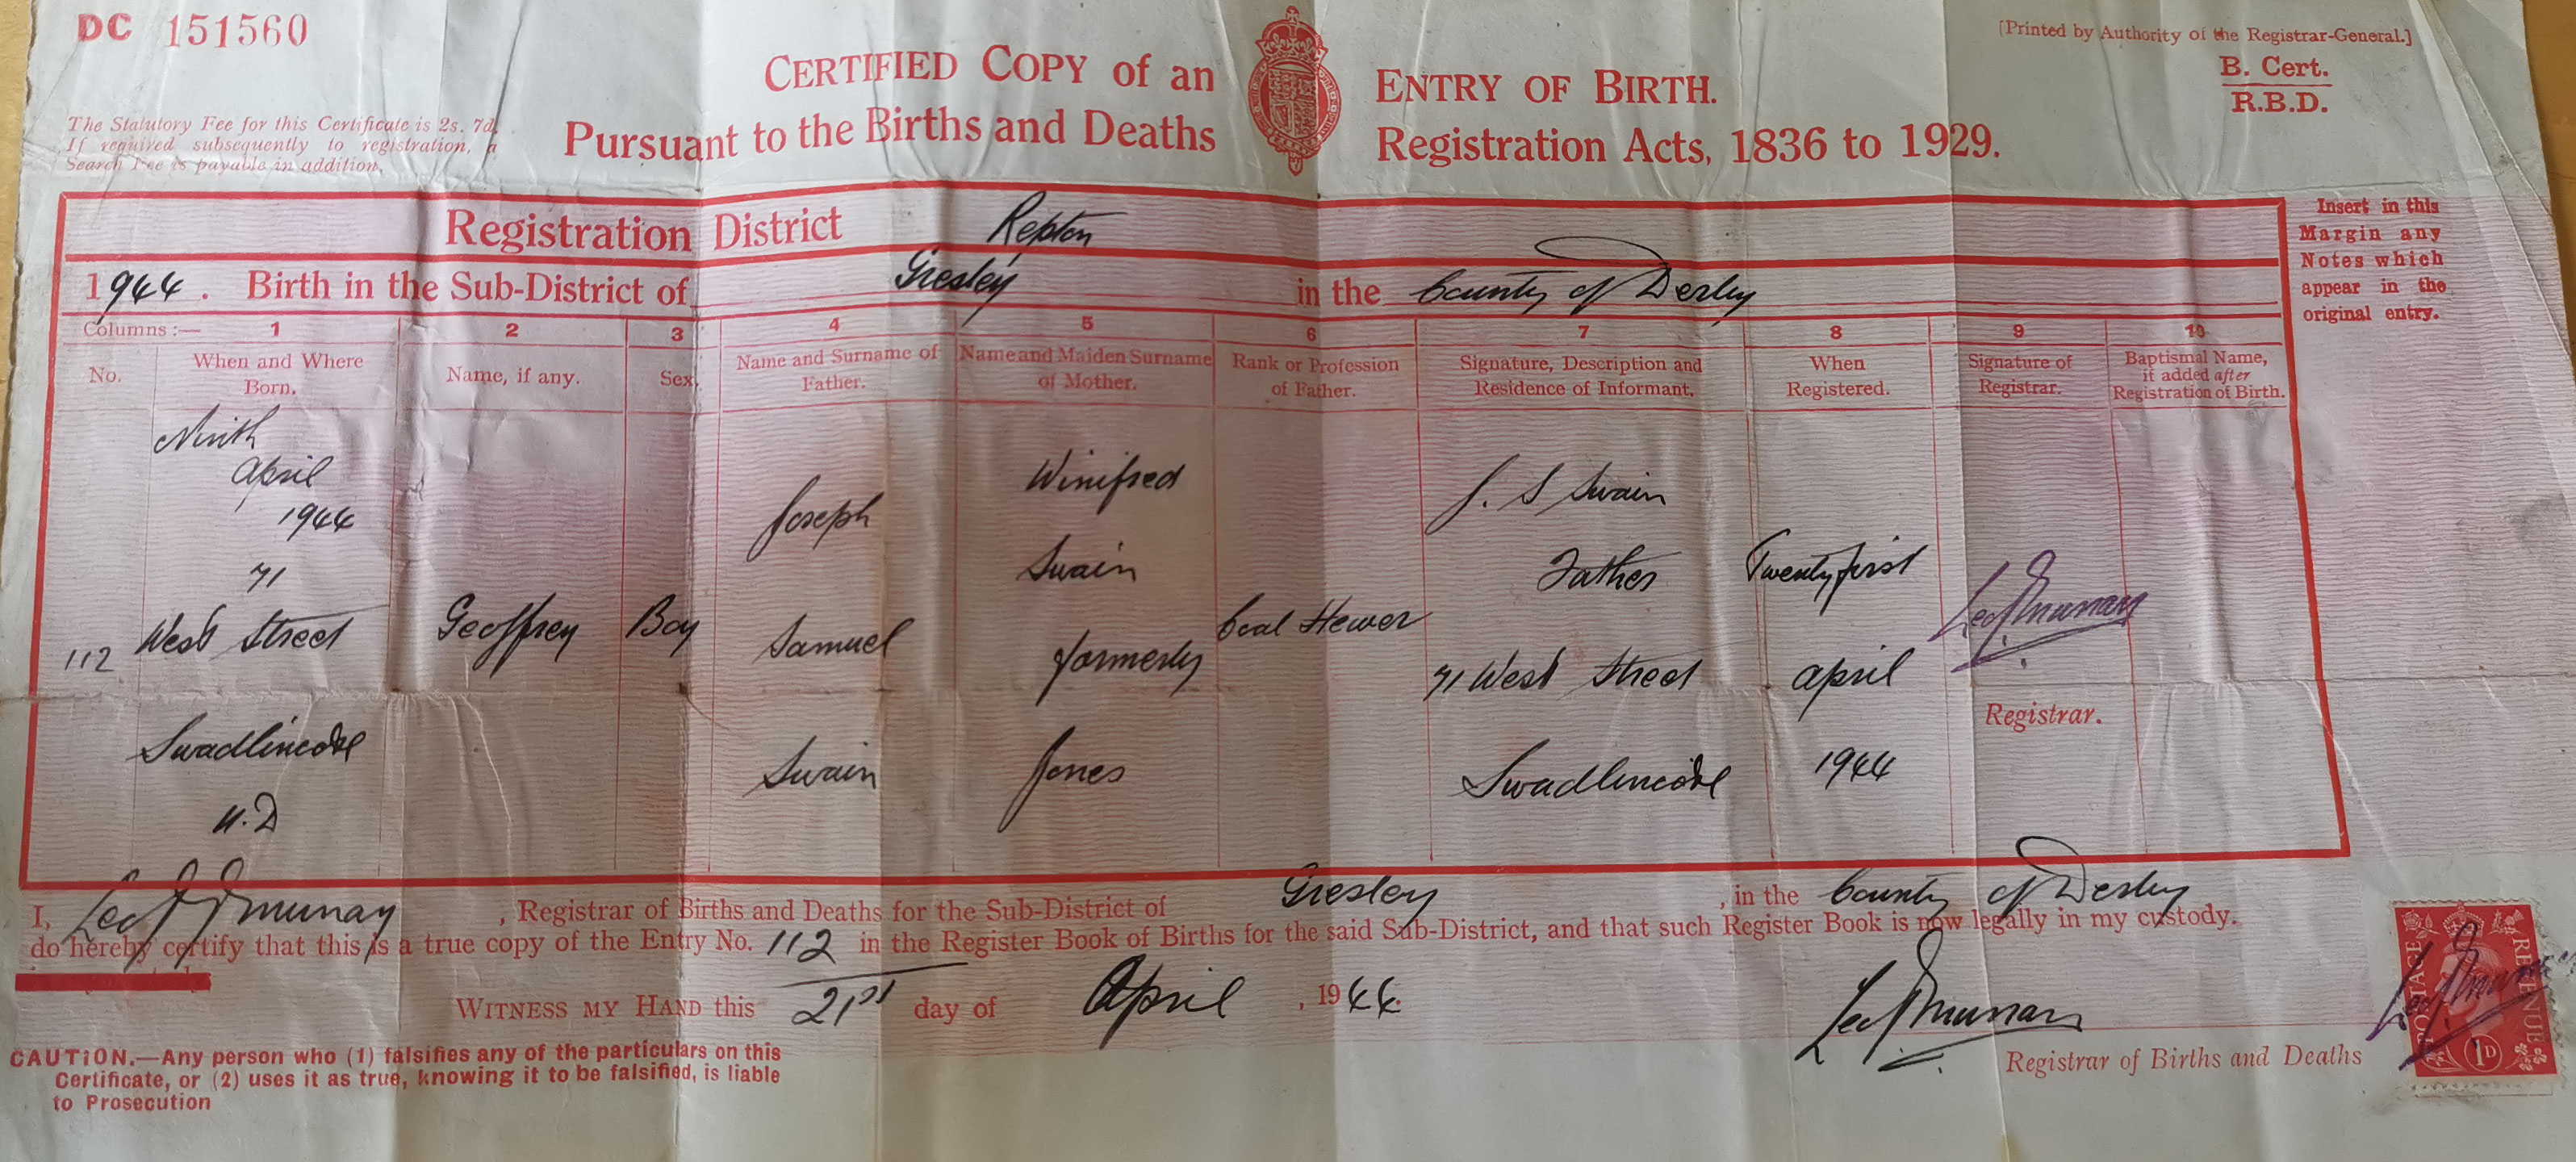 DC 151560
[Printed by Authority of the Registrar-General.]
B. Cert.
R.B.D.
The Statutory Fee for this Certificate is 2s. 7d.
If required subsequently to registration, a
Search Fee is payable in addition.
CERTIFIED COPY of an ENTRY OF BIRTH.
Pursuant to the Births and Deaths Registration Acts, 1836 to 1929.
Registration District Repton
1944. Birth in the Sub-District of Gresley in the County of Derby
Insert in this
Margin any
Notes which
appear in the
original entry.
Columns :— 1 2 3 4 5 6 7 8 9 10
No.
When and Where
Born.
Name, if any.
Sex.
Name and Surname of
Father.
Name and Maiden Surname
of Mother.
Rank or Profession
of Father.
Signature, Description and
Residence of Informant.
When
Registered.
Signature of
Registrar.
Baptismal Name,
if added after
Registration of Birth.
112
Ninth
April
1944
71
West Street
Swadlincote
U.D
Geoffrey
Boy
Joseph
Samuel
Swain
Winifred
Swain
formerly
Jones
Coal Hewer
J. S Swain
Father
71 West Street
Swadlincote
Twenty first
April
1944
Murray
Registrar.
I, Murray, Registrar of Births and Deaths for the Sub-District of Gresley, in the County of Derby
do hereby certify that this is a true copy of the Entry No. 112 in the Register Book of Births for the said Sub-District, and that such Register Book is now legally in my custody.
WITNESS MY HAND this 21st day of April, 1944.
Murray
Registrar of Births and Deaths
CAUTION.—Any person who (1) falsifies any of the particulars on this
Certificate, or (2) uses it as true, knowing it to be falsified, is liable
to Prosecution
POSTAGE
REVENUE
1D